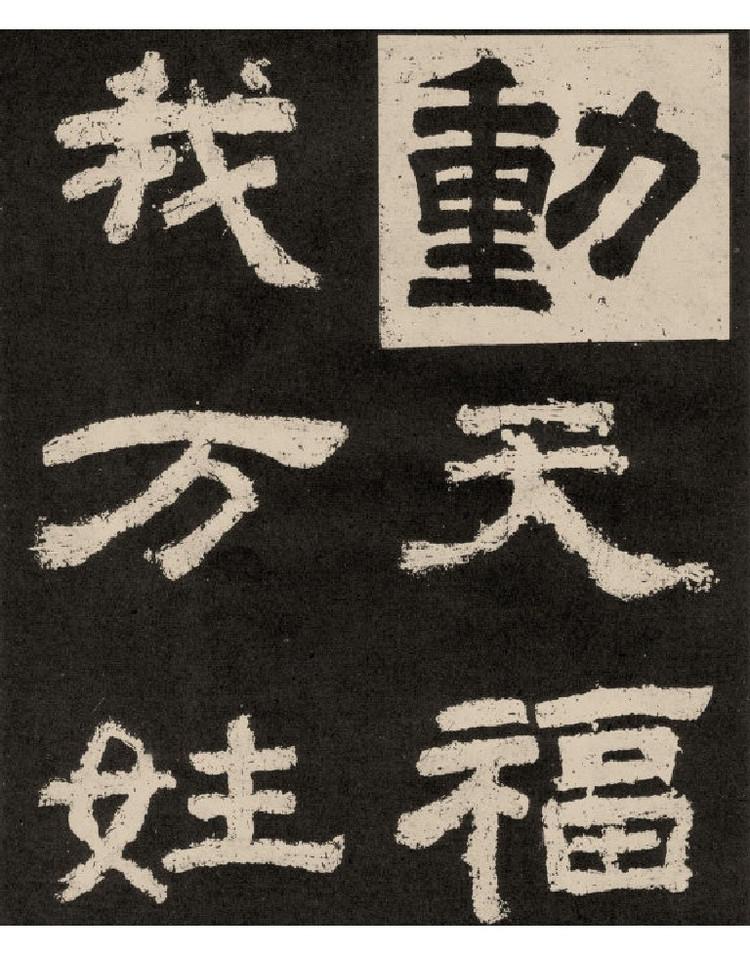 動天福
我万姓